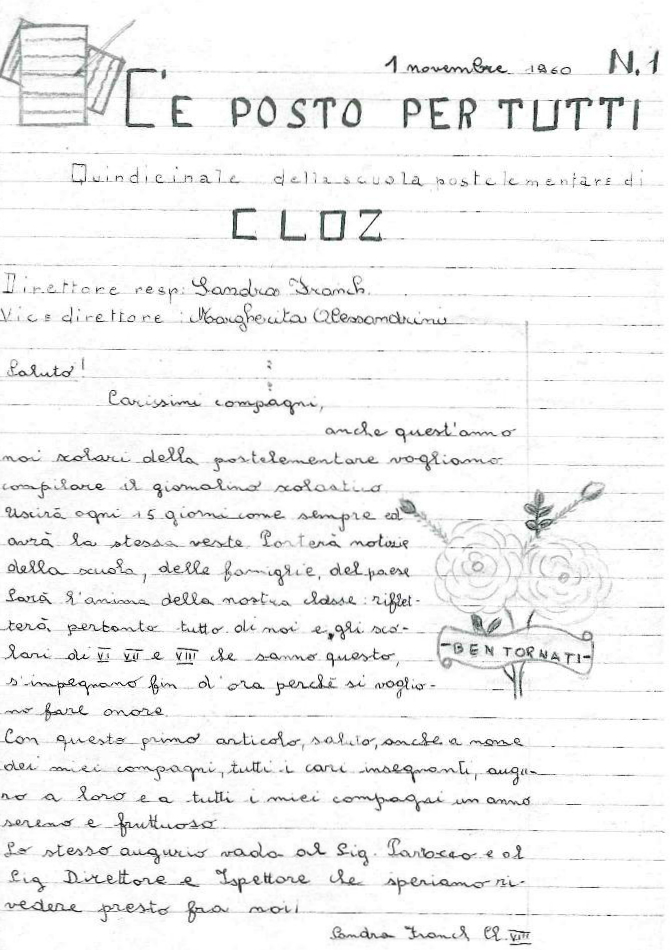 1 novembre 1960 N.1
C'È POSTO PER TUTTI
Quindicinale della scuola postelementare di
CLOZ
Direttore resp: Sandra Franch.
Vice direttore : Margherita Alessandrini
Saluto!
Carissimi compagni,
anche quest'anno
noi scolari della postelementare vogliamo
compilare il giornalino scolastico.
Uscirà ogni 15 giorni come sempre ed
avrà la stessa veste. Porterà notizie
della scuola, delle famiglie, del paese
Sarà l'anima della nostra classe: riflet-
terà pertanto tutto di noi e gli sco-
lari di VI VII e VIII che sanno questo,
s'impegnano fin d'ora perchè si voglio-
no fare onore.
-BEN TORNATI-
Con questo primo articolo, saluto, anche a nome
dei miei compagni, tutti i cari insegnanti, augu-
ro a loro e a tutti i miei compagni un anno
sereno e fruttuoso.
Lo stesso augurio vada al Sig. Parroco e al
Sig Direttore e Ispettore che speriamo ri-
vedere presto fra noi!
Sandra Franch Cl. VIII